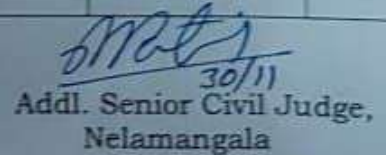 30/11
Addl. Senior Civil Judge,
Nelamangala